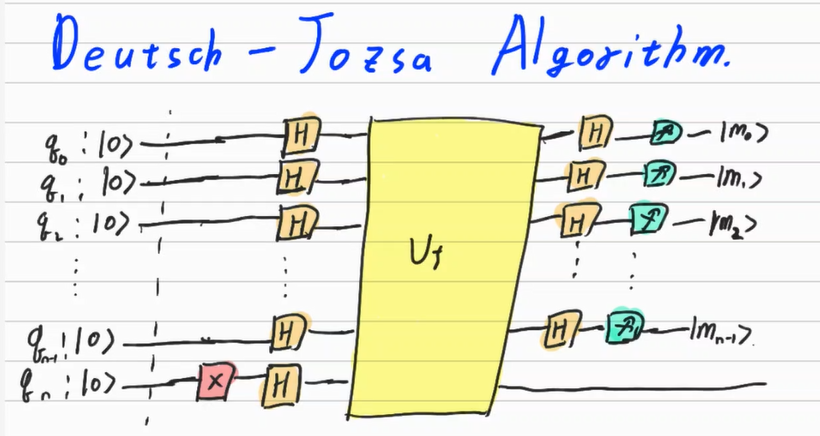 Deutsch - Jozsa Algorithm.
q0 : |0> H H |m0>
q1 : |0> H H |m1>
q2 : |0> H H |m2>
Uf
qn-1 : |0> H H |mn-1>
qn : |0> X H